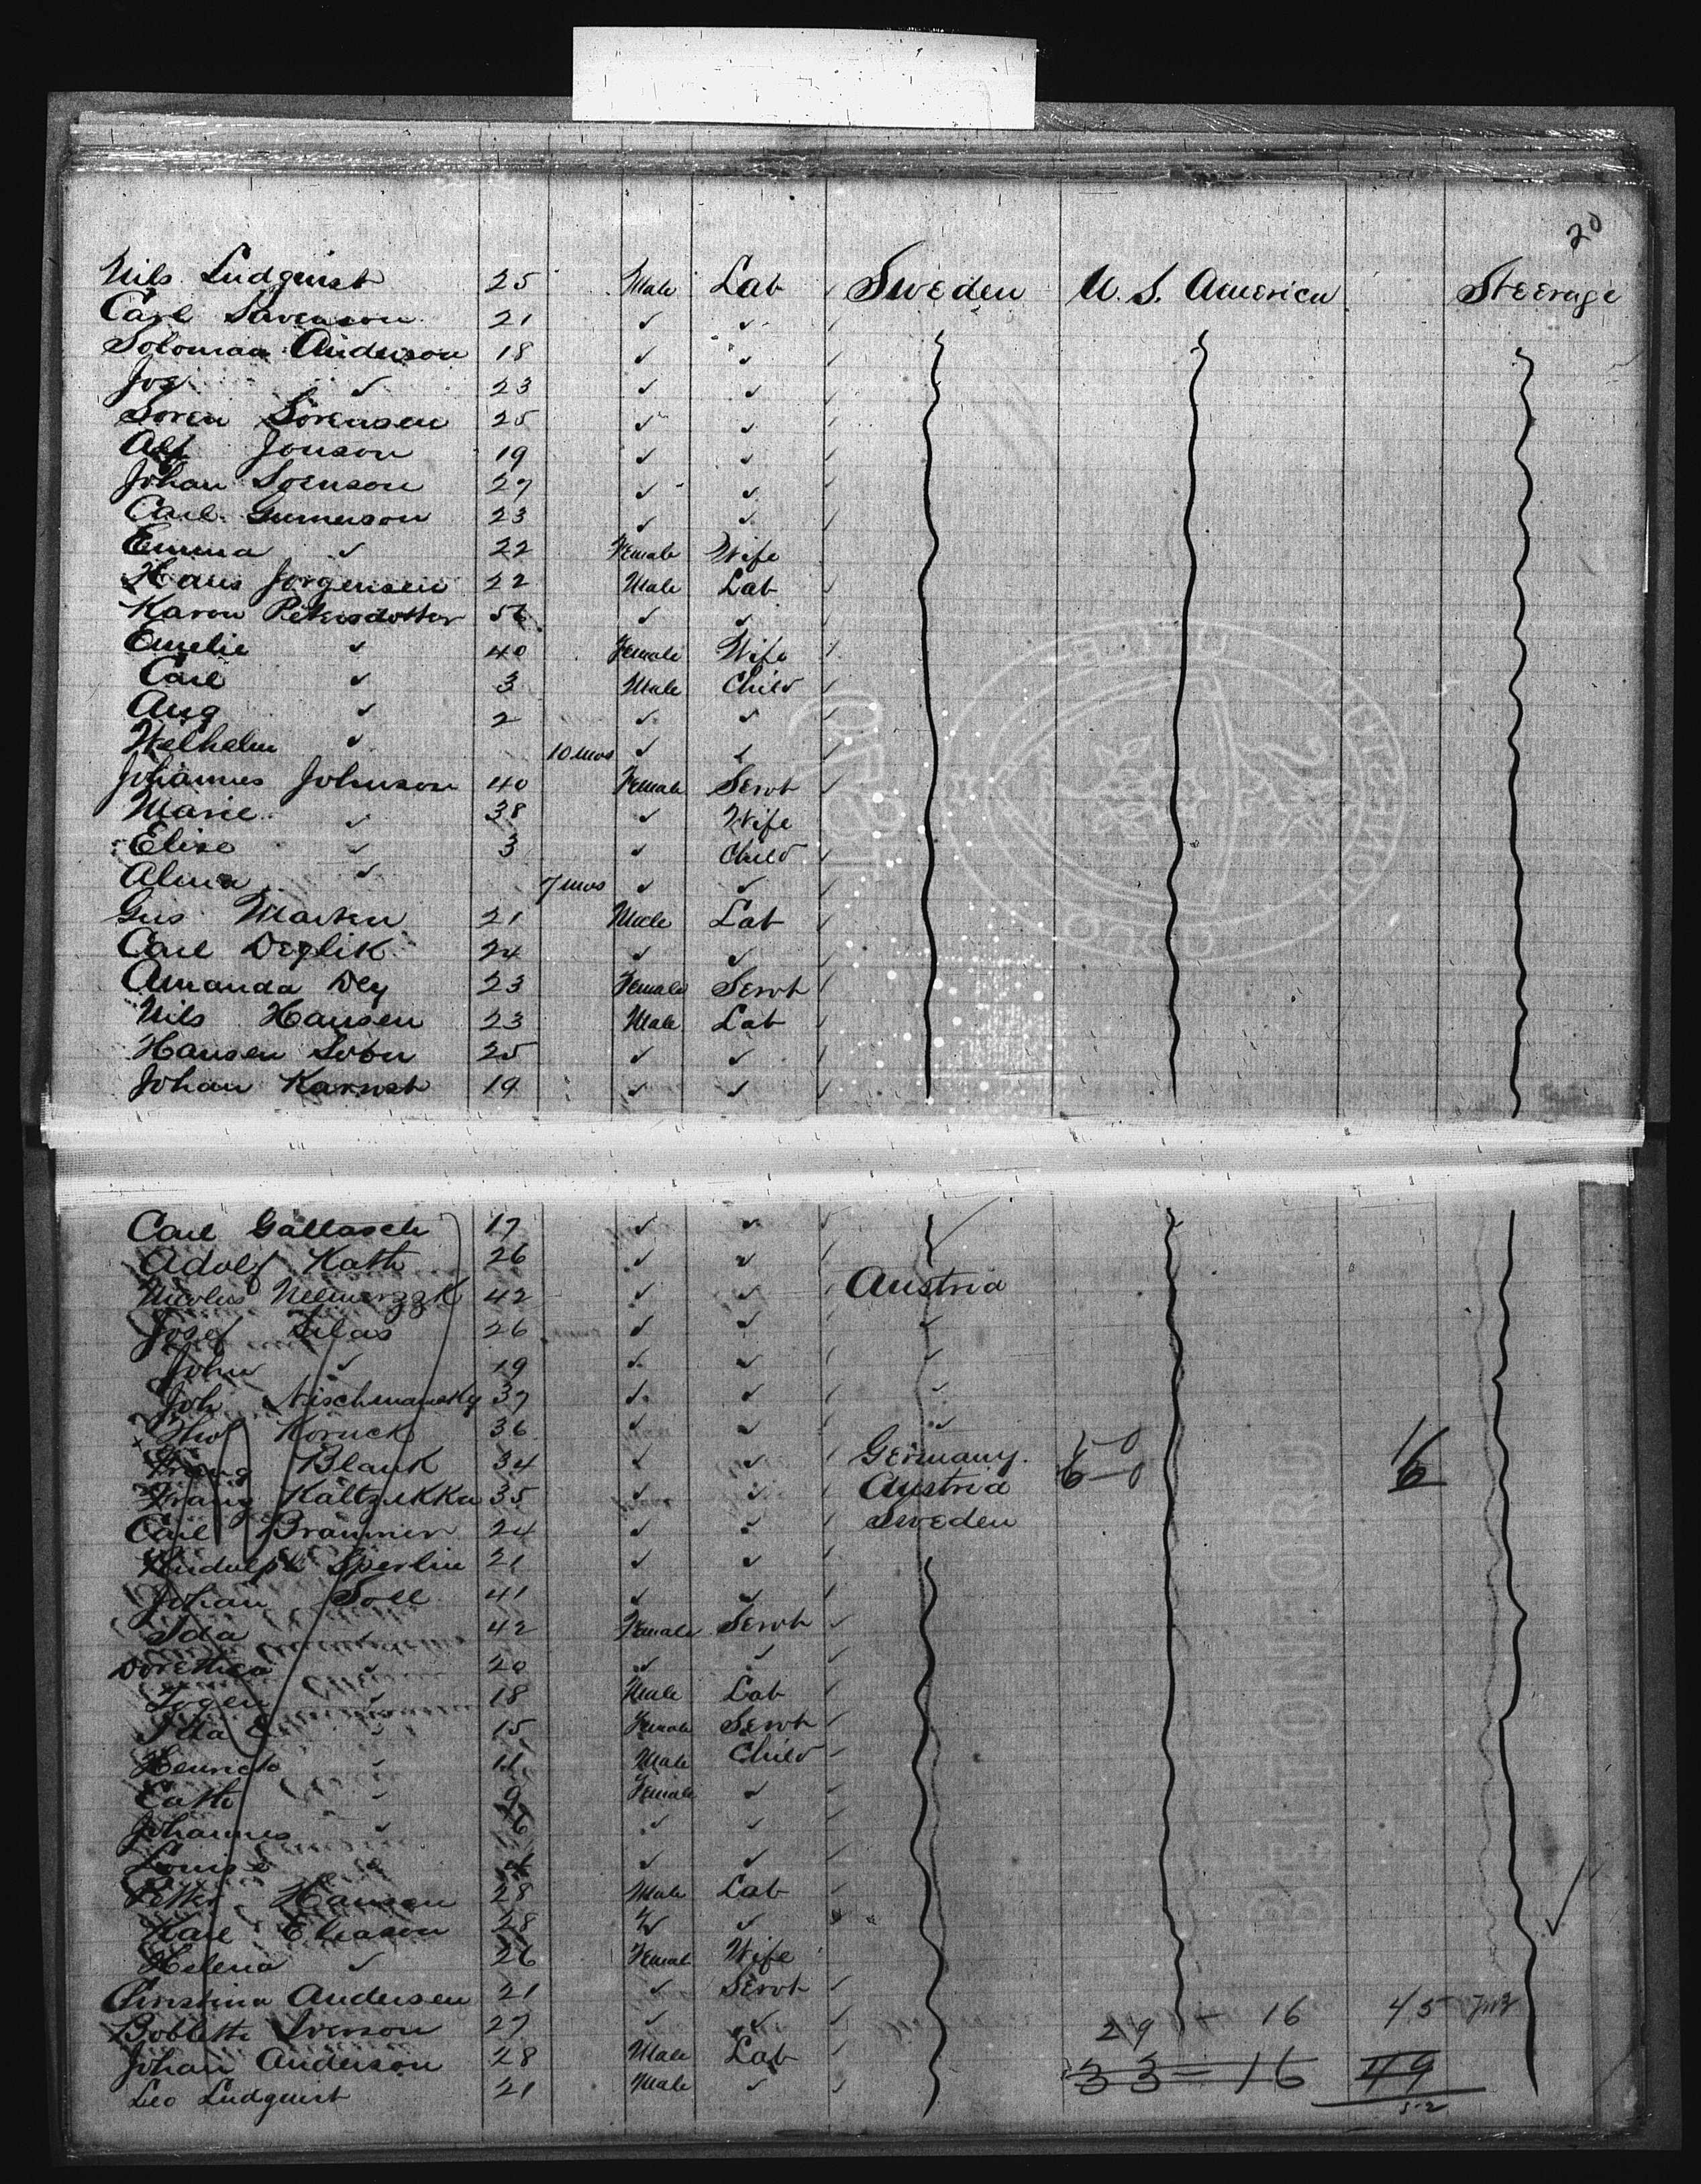 20
Nils Ludquist 25 Male Lab Sweden U. S. America Steerage
Carl Svenson 21 ✓ ✓
Soloman Anderson 18 ✓ ✓
Jog ✓ 23 ✓ ✓
Soren Sorensen 25 ✓ ✓
Alf Jonson 19 ✓ ✓
Johan Soenson 27 ✓ ✓
Carl Gunnerson 23 ✓ ✓
Emma ✓ 22 Female Wife
Hans Jorgensen 22 Male Lab
Karon Petersdotter 56 ✓ ✓
Emelie ✓ 40 Female Wife
Carl ✓ 3 Male Child
Aug ✓ 2 ✓ ✓
Welhelm ✓ 10 mos ✓ ✓
Johannes Johnson 40 Female Servt
Marie ✓ 38 ✓ Wife
Elise ✓ 3 ✓ Child
Alma ✓ 7 mos ✓ ✓
Gus Marten 21 Male Lab
Carl Deglik 24 ✓ ✓
Amanda Dey 23 Female Servt
Nils Hansen 23 Male Lab
Hansen 25 ✓ ✓
Johan 19 ✓ ✓
Carl Gallasch 17 ✓ ✓
Adolf Kath 26 ✓ ✓
42 ✓ ✓ Austria
Josef Silas 26 ✓ ✓ ✓
John ✓ 19 ✓ ✓ ✓
Joh Nischmansky 37 ✓ ✓ ✓
Koruck 36 ✓ ✓ ✓
Franz Blank 34 ✓ ✓ Germany
Franz Kaltzukka 35 ✓ ✓ Austria 6-0 16
Carl Brammer 24 ✓ ✓ Sweden
Rudolph Sperlin 21 ✓ ✓
Johan Soll 41 ✓ ✓
Ida ✓ 42 Female Servt
Dorethea ✓ 20 ✓ ✓
18 Male Lab
Ida E ✓ 15 Female Servt
Henrich ✓ 11 Male Child
Cath ✓ 9 Female ✓
Johannes ✓ 6 ✓ ✓
Louise ✓ 4 ✓ ✓
Petter Hansen 28 Male Lab
Karl Eleason 28 ✓ ✓
Helena ✓ 26 Female Wife
Christina Andersen 21 ✓ Servt
Boblette Iverson 27 ✓ ✓ 29 - 16 45
Johan Anderson 28 Male Lab 33 = 16 49
Leo Ludquist 21 Male ✓ 52
BRITONFORD